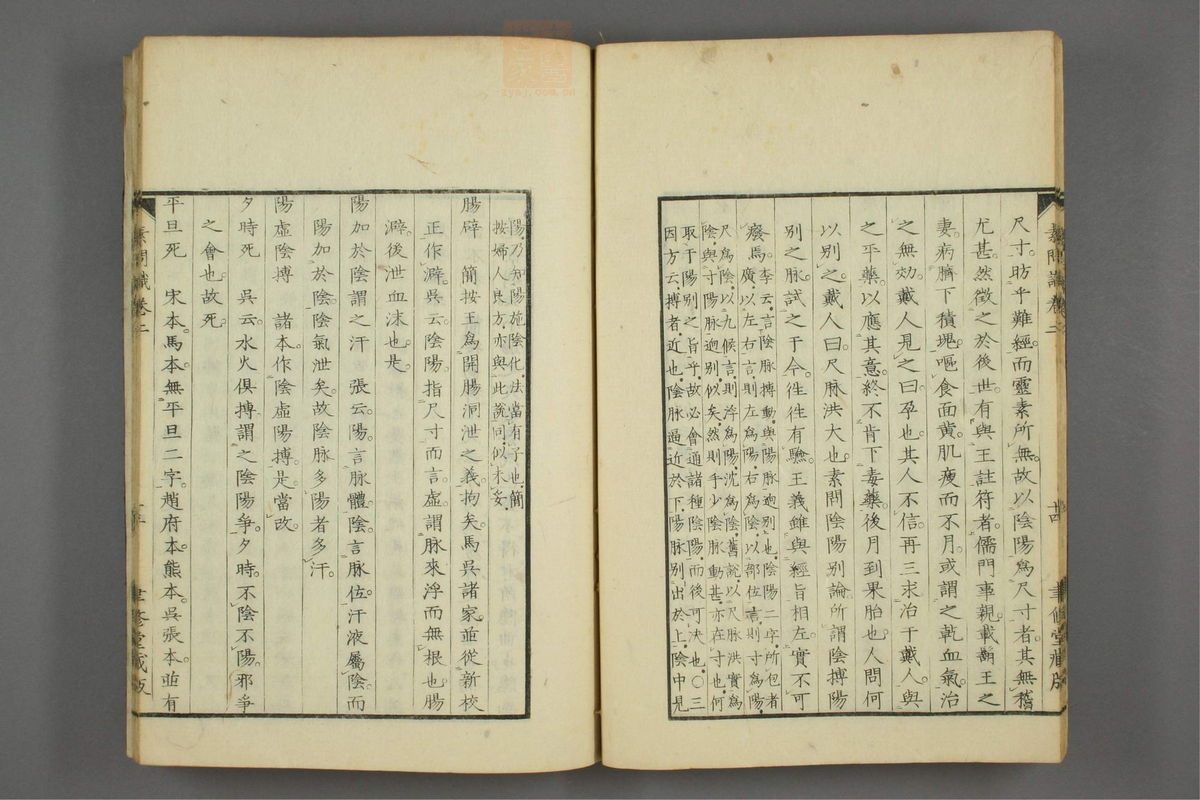 素問識卷二
十四
聿修堂藏版
尺寸。昉乎難經。而靈素所無。故以陰陽爲尺寸者。其無稽
尤甚。然徵之於後世。有與王註符者。儒門事親。載衛王之
妻。病臍下積塊。嘔食面黃。肌瘦而不月。或謂之乾血氣。治
之無効。戴人見之曰。孕也。其人不信。再三求治于戴人。與
之平藥。以應其意。終不肯下毒藥。後月到果胎也。人問何
以別之。戴人曰。尺脉洪大也。素問陰陽別論。所謂陰搏陽
別之脉。試之于今。往往有驗。王義雖與經旨相左。實不可
癈焉。李云。言陰脉搏動。與陽脉逈別也。陰陽二字。所包者
廣。以左右言。則左爲陽。右爲陰。以部位言。則寸爲陽。
尺爲陰。以九候言。則浮爲陽。沈爲陰。舊說以尺脉洪實爲
陰。與寸陽脉逈別似矣。然則手少陰脉動甚。亦在寸也。何
取于陽別之旨乎。故必會通諸種陰陽。而後可決也。○三
因方云。搏者。近也。陰脉逼近於下。陽脉別出於上。陰中見
陽。乃知陽施陰化。法當有子也。簡
按婦人良方。亦與此說同。似未妥。
腸辟　簡按王爲開腸洞泄之義。拘矣。馬吳諸家。並從新校
正作澼。吳云。陰陽。指尺寸而言。虛。謂脉來浮而無根也。腸
澼。後泄血沫也。是。
陽加於陰謂之汗　張云。陽。言脉體。陰。言脉位。汗液屬陰。而
陽加於陰。陰氣泄矣。故陰脉多陽者多汗。
陽虛陰搏　諸本作陰虛陽搏。是。當改。
夕時死　吳云。水火俱搏。謂之陰陽爭。夕時。不陰不陽。邪爭
之會也。故死。
平旦死　宋本。馬本。無平旦二字。趙府本。熊本。吳張本。並有
素問識卷二
聿修堂藏版